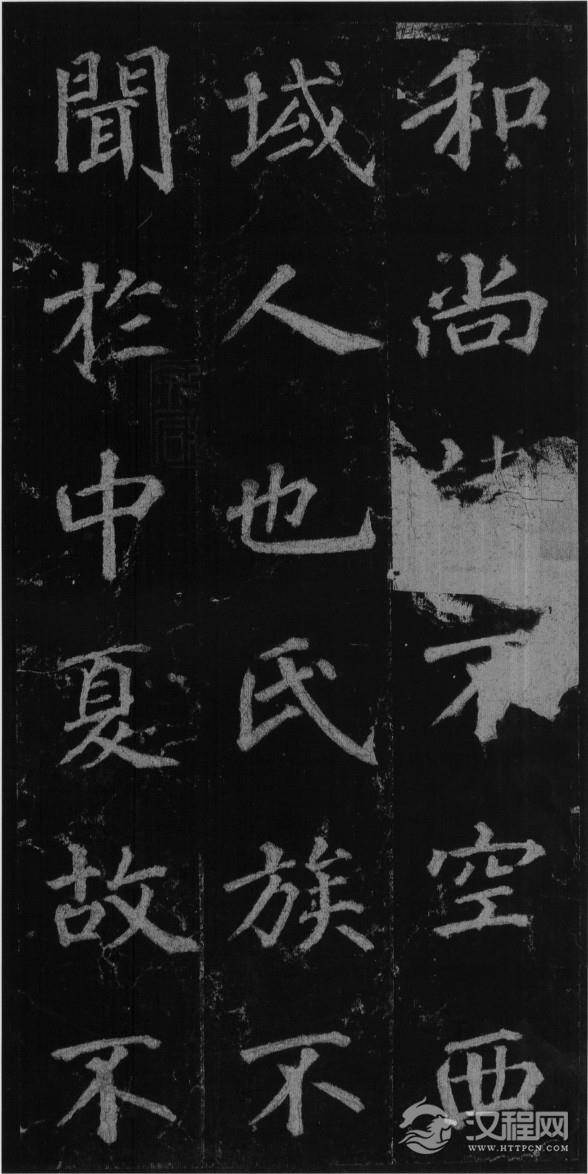 和尚不空西
域人也氏族不
聞於中夏故不
汉程网
WWW.HTTPCN.COM